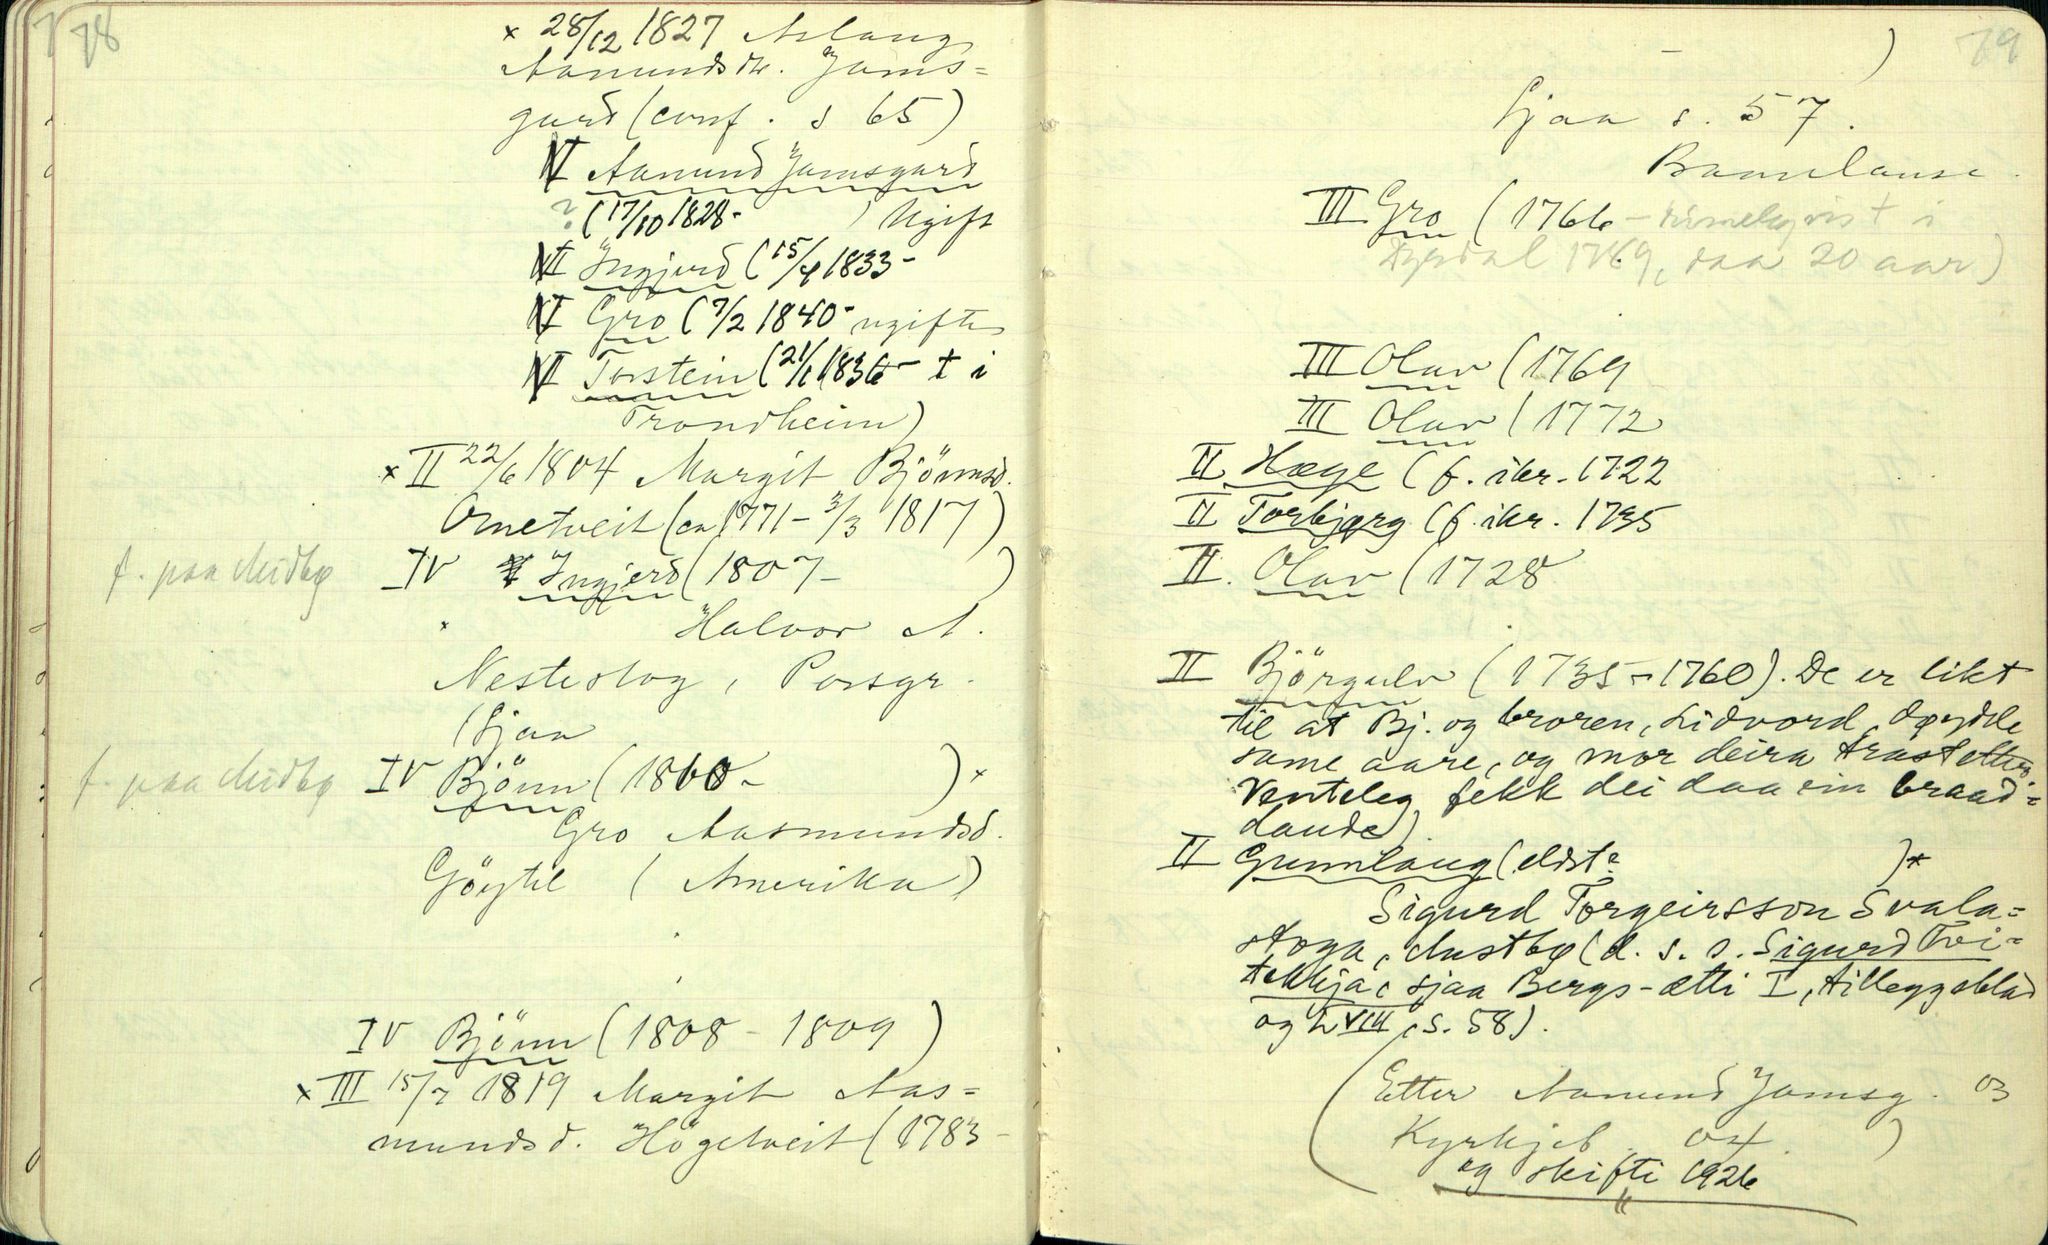 78
× 28/12 1827 Aslaug
Aamundsdr. Jams=
gard (conf. s 65)
VI Aamund Jamsgard
? (17/10 1828- ) Ugift
VI Ingjerd (15/4 1833-
VI Gro (7/2 1840- ugift
VI Torstein (21/1 1836- † i
Trondheim)
× II 22/6 1804 Margit Bjönnsd.
Ometveit (ca 1771 - 3/3 1817)
f. paa Midbø IV Ingjerd (1807- )
× Halvor A.
Nestestog, Porsgr.
(Sjaa
f. paa Midbø IV Bjönn (1808- ) ×
Gro Aasmundsd.
Göytil (Amerika)
IV Bjönn (1808 - 1809)
× III 15/7 1819 Margit Aas=
mundsd. Högetveit (1783-
79
- )
Sjaa s. 57.
Barnlause.
III Gro (1766 - i
1789, daa 20 aar)
III Olav (1769
III Olav (1772
II Hæge (f. ikr. 1722
II Torbjørg (f. ikr. 1735
II. Olav (1728
II Björgulv (1735-1760). De er likt
til at Bj. og broren, Lidvord, døydde
same aare, og mor deira trast etter.
Venteleg fekk dei daa ein braad=
daude).
II Gunnlaug (eldst? )×
Sigurd Torgeirsson Svala=
stoga, Austbø (d. s. s. Sigurd Tvi=
tekkja, sjaa Bergs-ætti I, tilleggsblad
og L VIII, s. 58).
(Etter Aamund Jamsg. 03
Kyrkjeb. 04 )
og skifti 1926